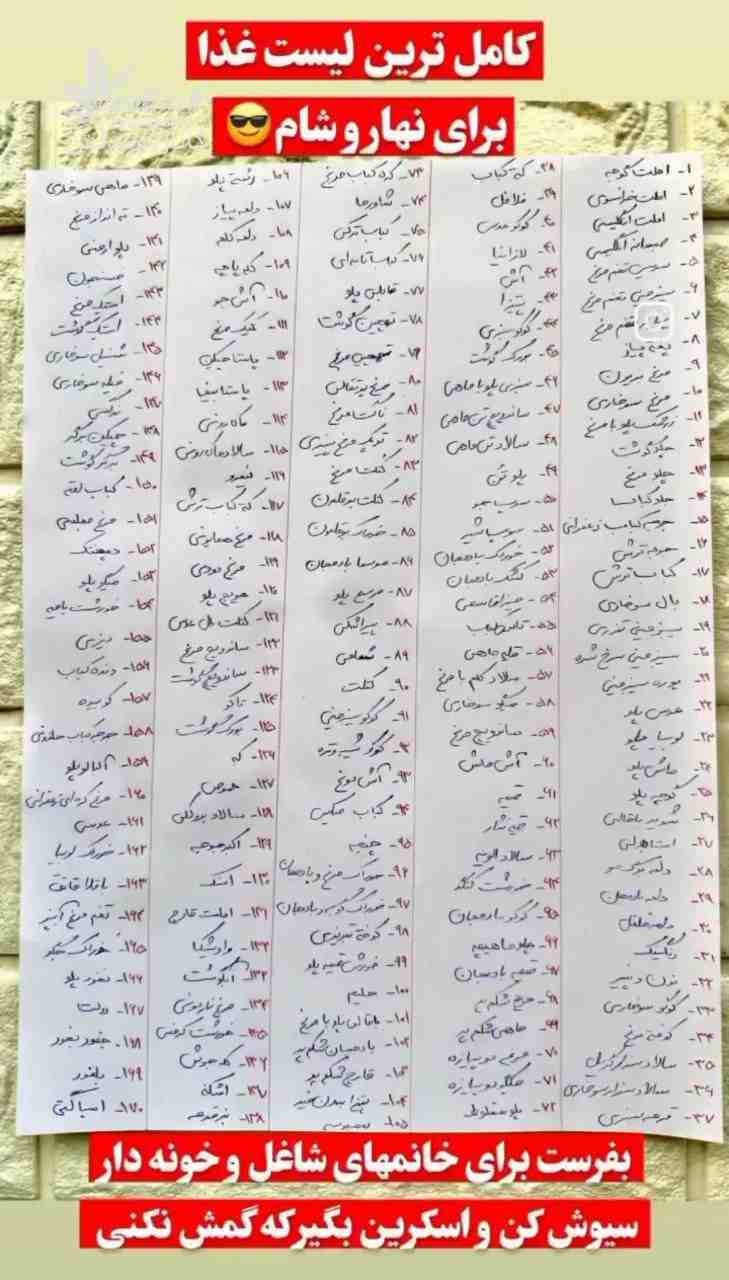 کامل ترین لیست غذا
برای نهار و شام😎
۱- املت گوجه
۲- املت فرانسوی
۳- املت انگلیسی
۴- صبحانه انگلیسی
۵- سوسیس تخم مرغ
۶- سیب زمینی تخم مرغ
۷- تخم مرغ
۸-
۹- مرغ بریون
۱۰- مرغ سوخاری
۱۱- زرشک پلو با مرغ
۱۲- چلو گوشت
۱۳- چلو مرغ
۱۴- چلو کباب
۱۵- جوجه کباب زعفرانی
۱۶- جوجه ترش
۱۷- کباب ترش
۱۸- بال سوخاری
۱۹- سیب زمینی تنوری
۲۰- سیب زمینی سرخ شده
۲۱- پوره سیب زمینی
۲۲- عدس پلو
۲۳- لوبیا پلو
۲۴- ماش پلو
۲۵- گوجه پلو
۲۶- شوید باقالی
۲۷- استانبولی
۲۸- دلمه برگ مو
۲۹- دلمه بادمجان
۳۰- دلمه فلفل
۳۱-
۳۲- نون و پنیر
۳۳- کوکو سوخاری
۳۴- کوفته مرغ
۳۵- سالاد سزار گریل
۳۶- سالاد سزار سوخاری
۳۷- قورمه سبزی
۳۸- کباب
۳۹- فلافل
۴۰- کوکو عدس
۴۱- لازانیا
۴۲- آش
۴۳- پیتزا
۴۴- کوکو سبزی
۴۵- خوراک گوشت
۴۶- سبزی پلو با ماهی
۴۷- ساندویچ تن ماهی
۴۸- سالاد تن ماهی
۴۹- پلو تن
۵۰- سوپ جو
۵۱- سوپ شیر
۵۲- خوراک بادمجان
۵۳- کشک بادمجان
۵۴- میرزاقاسمی
۵۵-
۵۶- قلیه ماهی
۵۷- سالاد کلم با مرغ
۵۸- میگو سوخاری
۵۹- ساندویچ مرغ
۶۰- آش ماش
۶۱- قیمه
۶۲- قیمه نثار
۶۳- سالاد الویه
۶۴- خورشت کنگر
۶۵- کوکو بادمجان
۶۶- چلو ماهیچه
۶۷- قیمه بادمجان
۶۸- مرغ شکم پر
۶۹- ماهی شکم پر
۷۰- مرغ دوپیازه
۷۱- میگو دوپیازه
۷۲- پلو مخلوط
۷۳- کباب مرغ
۷۴- شاورما
۷۵- کباب ترکی
۷۶- کباب تابه ای
۷۷- قابلی پلو
۷۸- ته‌چین گوشت
۷۹- ته‌چین مرغ
۸۰- مرغ پرتقالی
۸۱- ناگت مرغ
۸۲-
۸۳- کتلت مرغ
۸۴- کتلت بوقلمون
۸۵- خوراک بوقلمون
۸۶- بادمجان
۸۷- مرصع پلو
۸۸- پیراشکی
۸۹- شامی
۹۰- کتلت
۹۱- کوکو سیب زمینی
۹۲- کوکو شیر و تره
۹۳- آش دوغ
۹۴- کباب چنگیز
۹۵- چنجه
۹۶- خوراک مرغ و بادمجان
۹۷- خوراک گوجه و بادمجان
۹۸- کوفته تبریزی
۹۹- خورش قیمه پلو
۱۰۰- حلیم
۱۰۱- باقالی پلو با مرغ
۱۰۲- بادمجان شکم پر
۱۰۳- قارچ شکم پر
۱۰۴-
۱۰۵- سمبوسه
۱۰۶- رشته پلو
۱۰۷- دلمه پیاز
۱۰۸- دلمه کلم
۱۰۹- کله پاچه
۱۱۰- آش جو
۱۱۱- کیک مرغ
۱۱۲- پاستا چیکن
۱۱۳- پاستا بیف
۱۱۴- ماکارونی
۱۱۵- سالاد ماکارونی
۱۱۶- نیمرو
۱۱۷- کباب ترش
۱۱۸- مرغ همایونی
۱۱۹-
۱۲۰- هویج پلو
۱۲۱-
۱۲۲- ساندویچ مرغ
۱۲۳- ساندویچ گوشت
۱۲۴- تاکو
۱۲۵- برگ گوشت
۱۲۶-
۱۲۷- حمص
۱۲۸- سالاد بروکلی
۱۲۹- اکبر جوجه
۱۳۰- اسنک
۱۳۱- املت قارچ
۱۳۲- واویشکا
۱۳۳- آبگوشت
۱۳۴- مرغ ناردونی
۱۳۵- خورشت کرفس
۱۳۶- کله جوش
۱۳۷- اشکنه
۱۳۸-
۱۳۹- ماهی سوخاری
۱۴۰- ته انداز مرغ
۱۴۱- پلو ارمنی
۱۴۲-
۱۴۳- استیک مرغ
۱۴۴- استیک گوشت
۱۴۵- شنیسل سوخاری
۱۴۶- فیله سوخاری
۱۴۷- نرگسی
۱۴۸- چیکن برگر
۱۴۹- برگر گوشت
۱۵۰- کباب لقمه
۱۵۱- مرغ مجلسی
۱۵۲-
۱۵۳- میگو پلو
۱۵۴- خورشت بامیه
۱۵۵- دیزی
۱۵۶- دنده کباب
۱۵۷- کوبیده
۱۵۸-
۱۵۹- آلبالو پلو
۱۶۰- مرغ کره ای زعفرانی
۱۶۱- عدسی
۱۶۲- خوراک لوبیا
۱۶۳- باقلا قاتق
۱۶۴- تخم مرغ آبپز
۱۶۵- خوراک میگو
۱۶۶- نخود پلو
۱۶۷- دولت
۱۶۸- جغور بغور
۱۶۹- بلغور
۱۷۰- اسپاگتی
بفرست برای خانمهای شاغل و خونه دار
سیوش کن و اسکرین بگیر که گمش نکنی